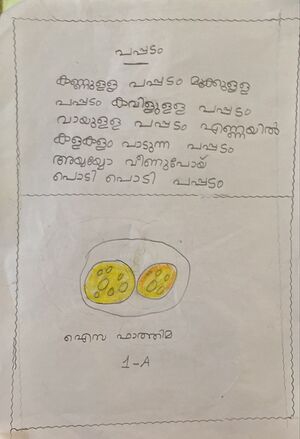 പപ്പടം
കണ്ണുള്ള പപ്പടം മൂക്കുള്ള
പപ്പടം കവിളുള്ള പപ്പടം
വായുള്ള പപ്പടം എണ്ണയിൽ
കളകളം പാടുന്ന പപ്പടം
അയ്യയ്യോ വീണുപോയ്
പൊടി പൊടി പപ്പടം
ഐസ ഫാത്തിമ
1-A